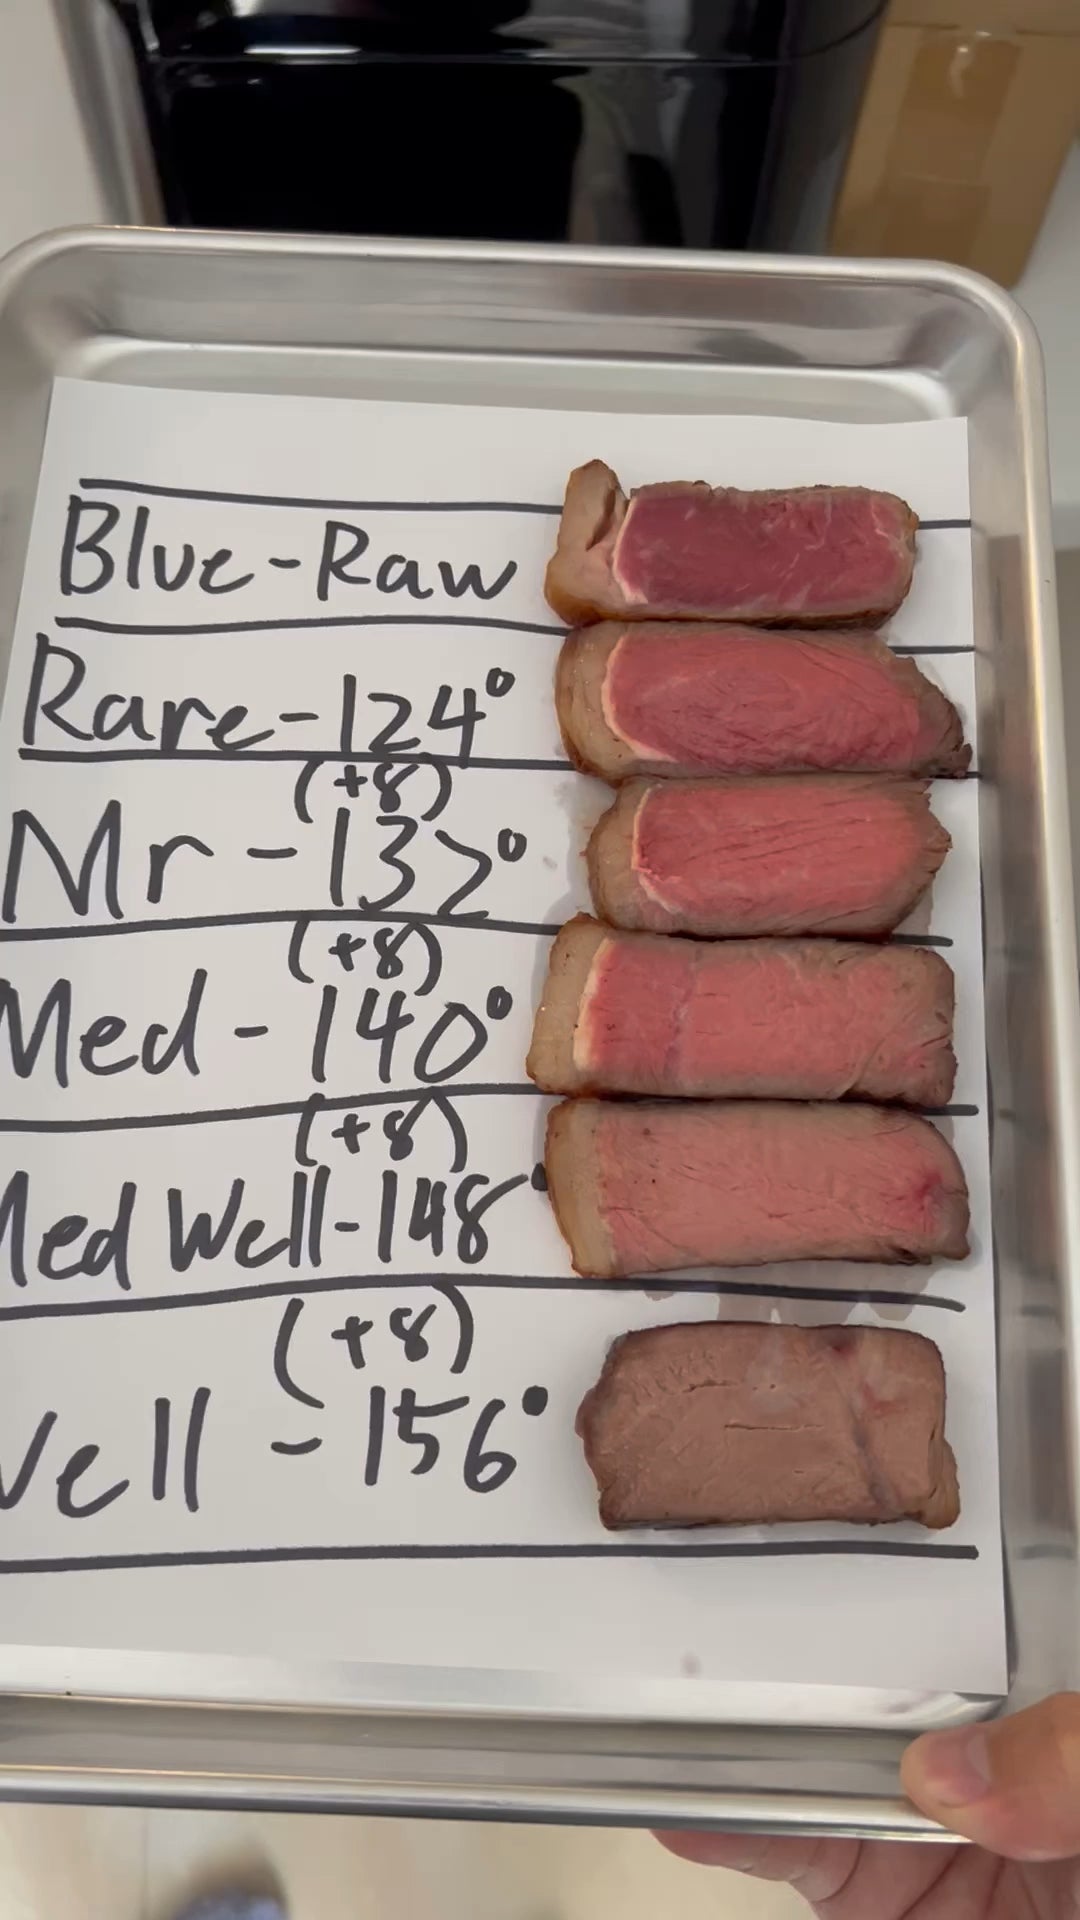 Blue-Raw
Rare-124°
(+8)
Mr-132°
(+8)
Med-140°
(+8)
Med Well-148°
(+8)
Well-156°